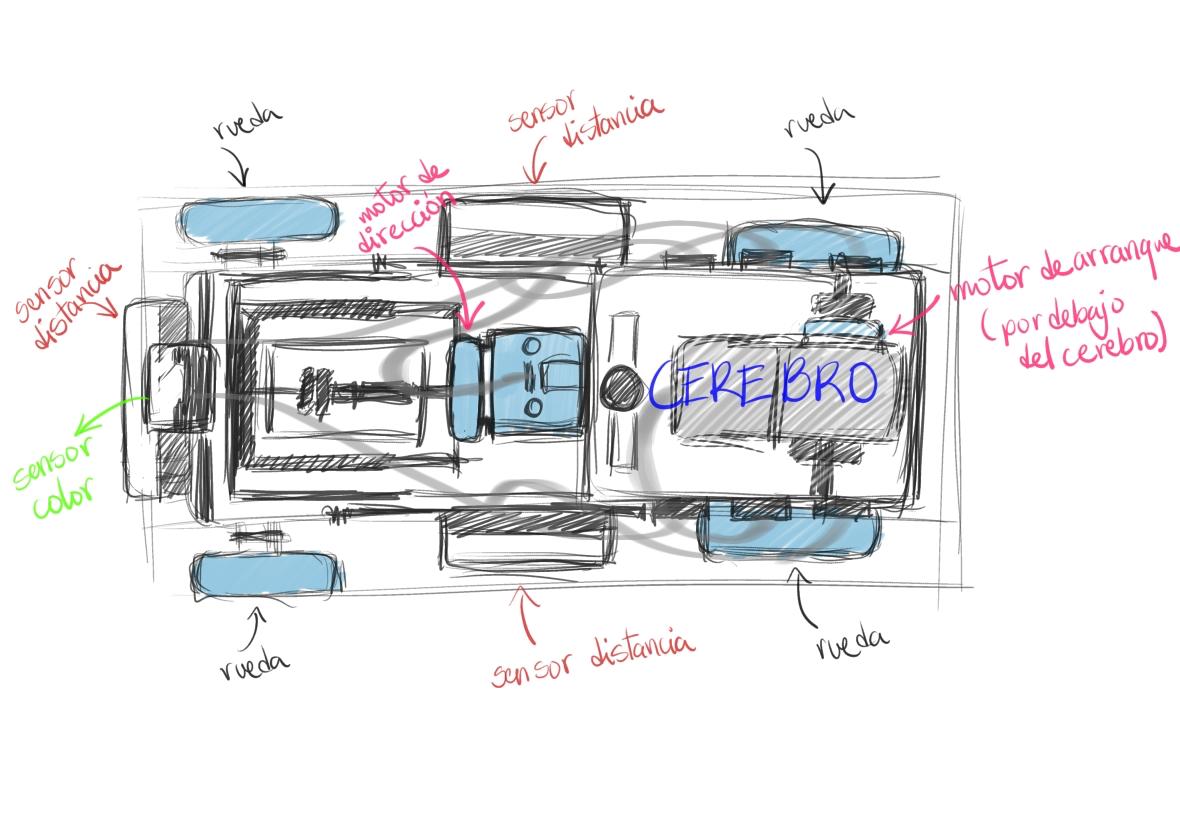 rueda
sensor
distancia
rueda
motor de
dirección
sensor
distancia
motor de arranque
(por debajo
del cerebro)
CEREBRO
sensor
color
rueda
sensor distancia
rueda